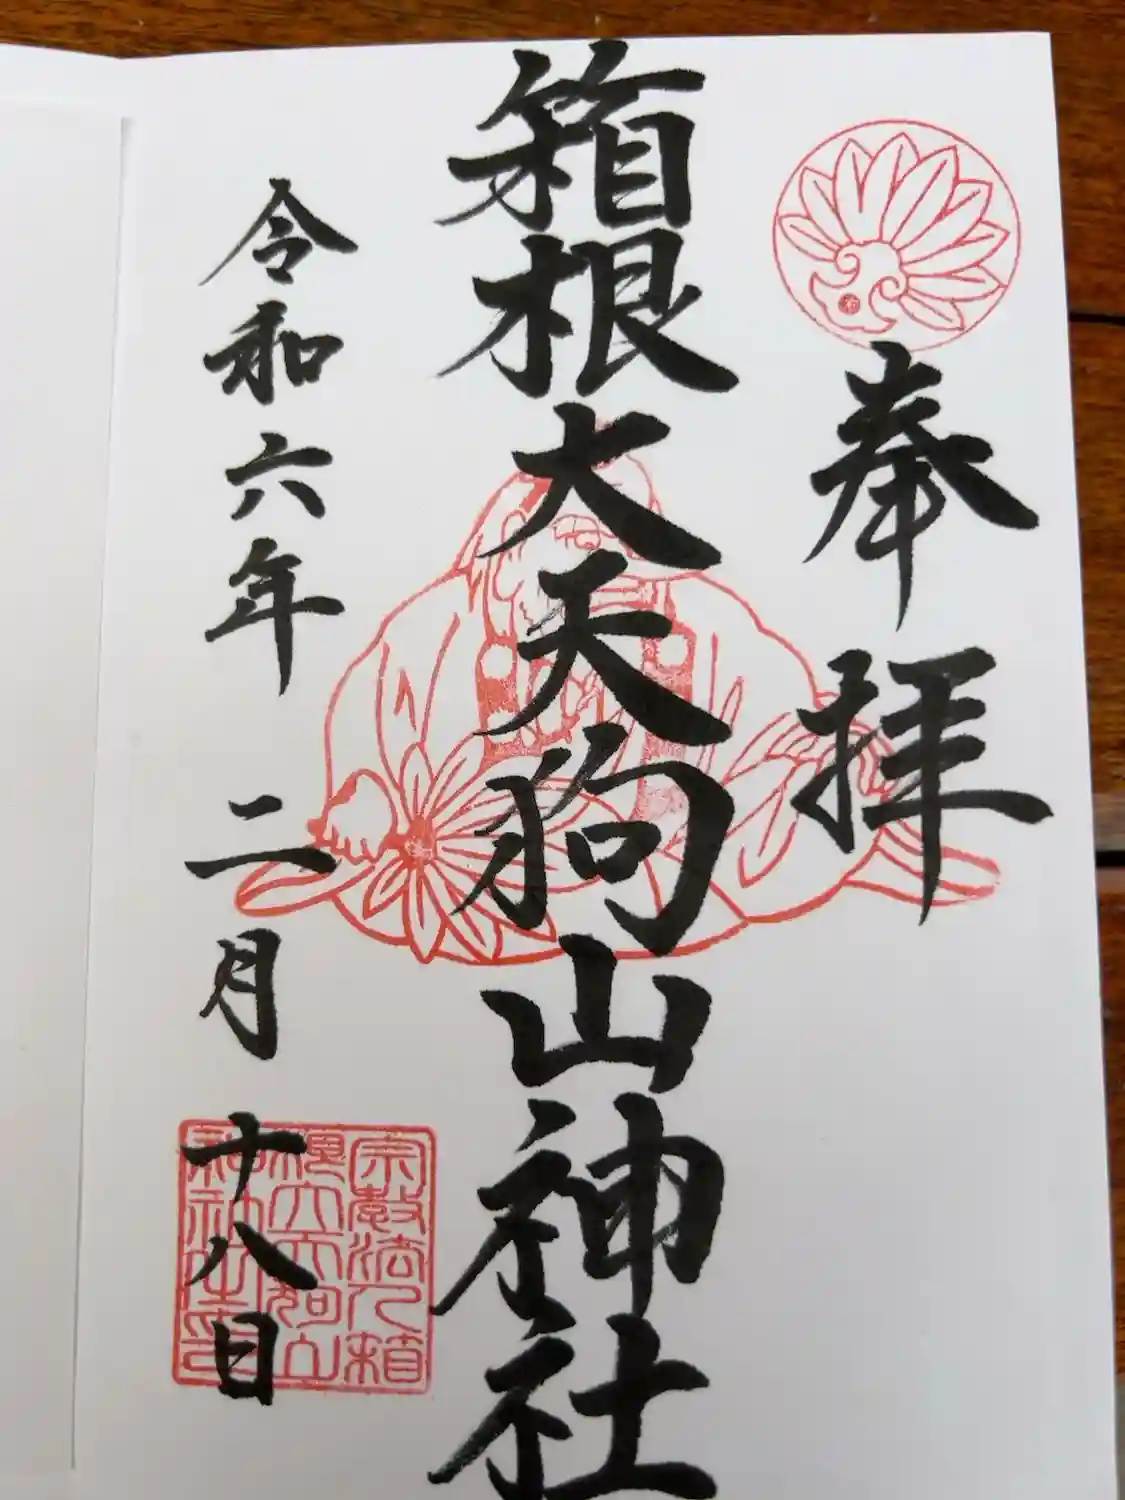 奉拝
箱根大天狗山神社
令和六年二月十八日
宗教法人箱
根大天狗山
神社之印